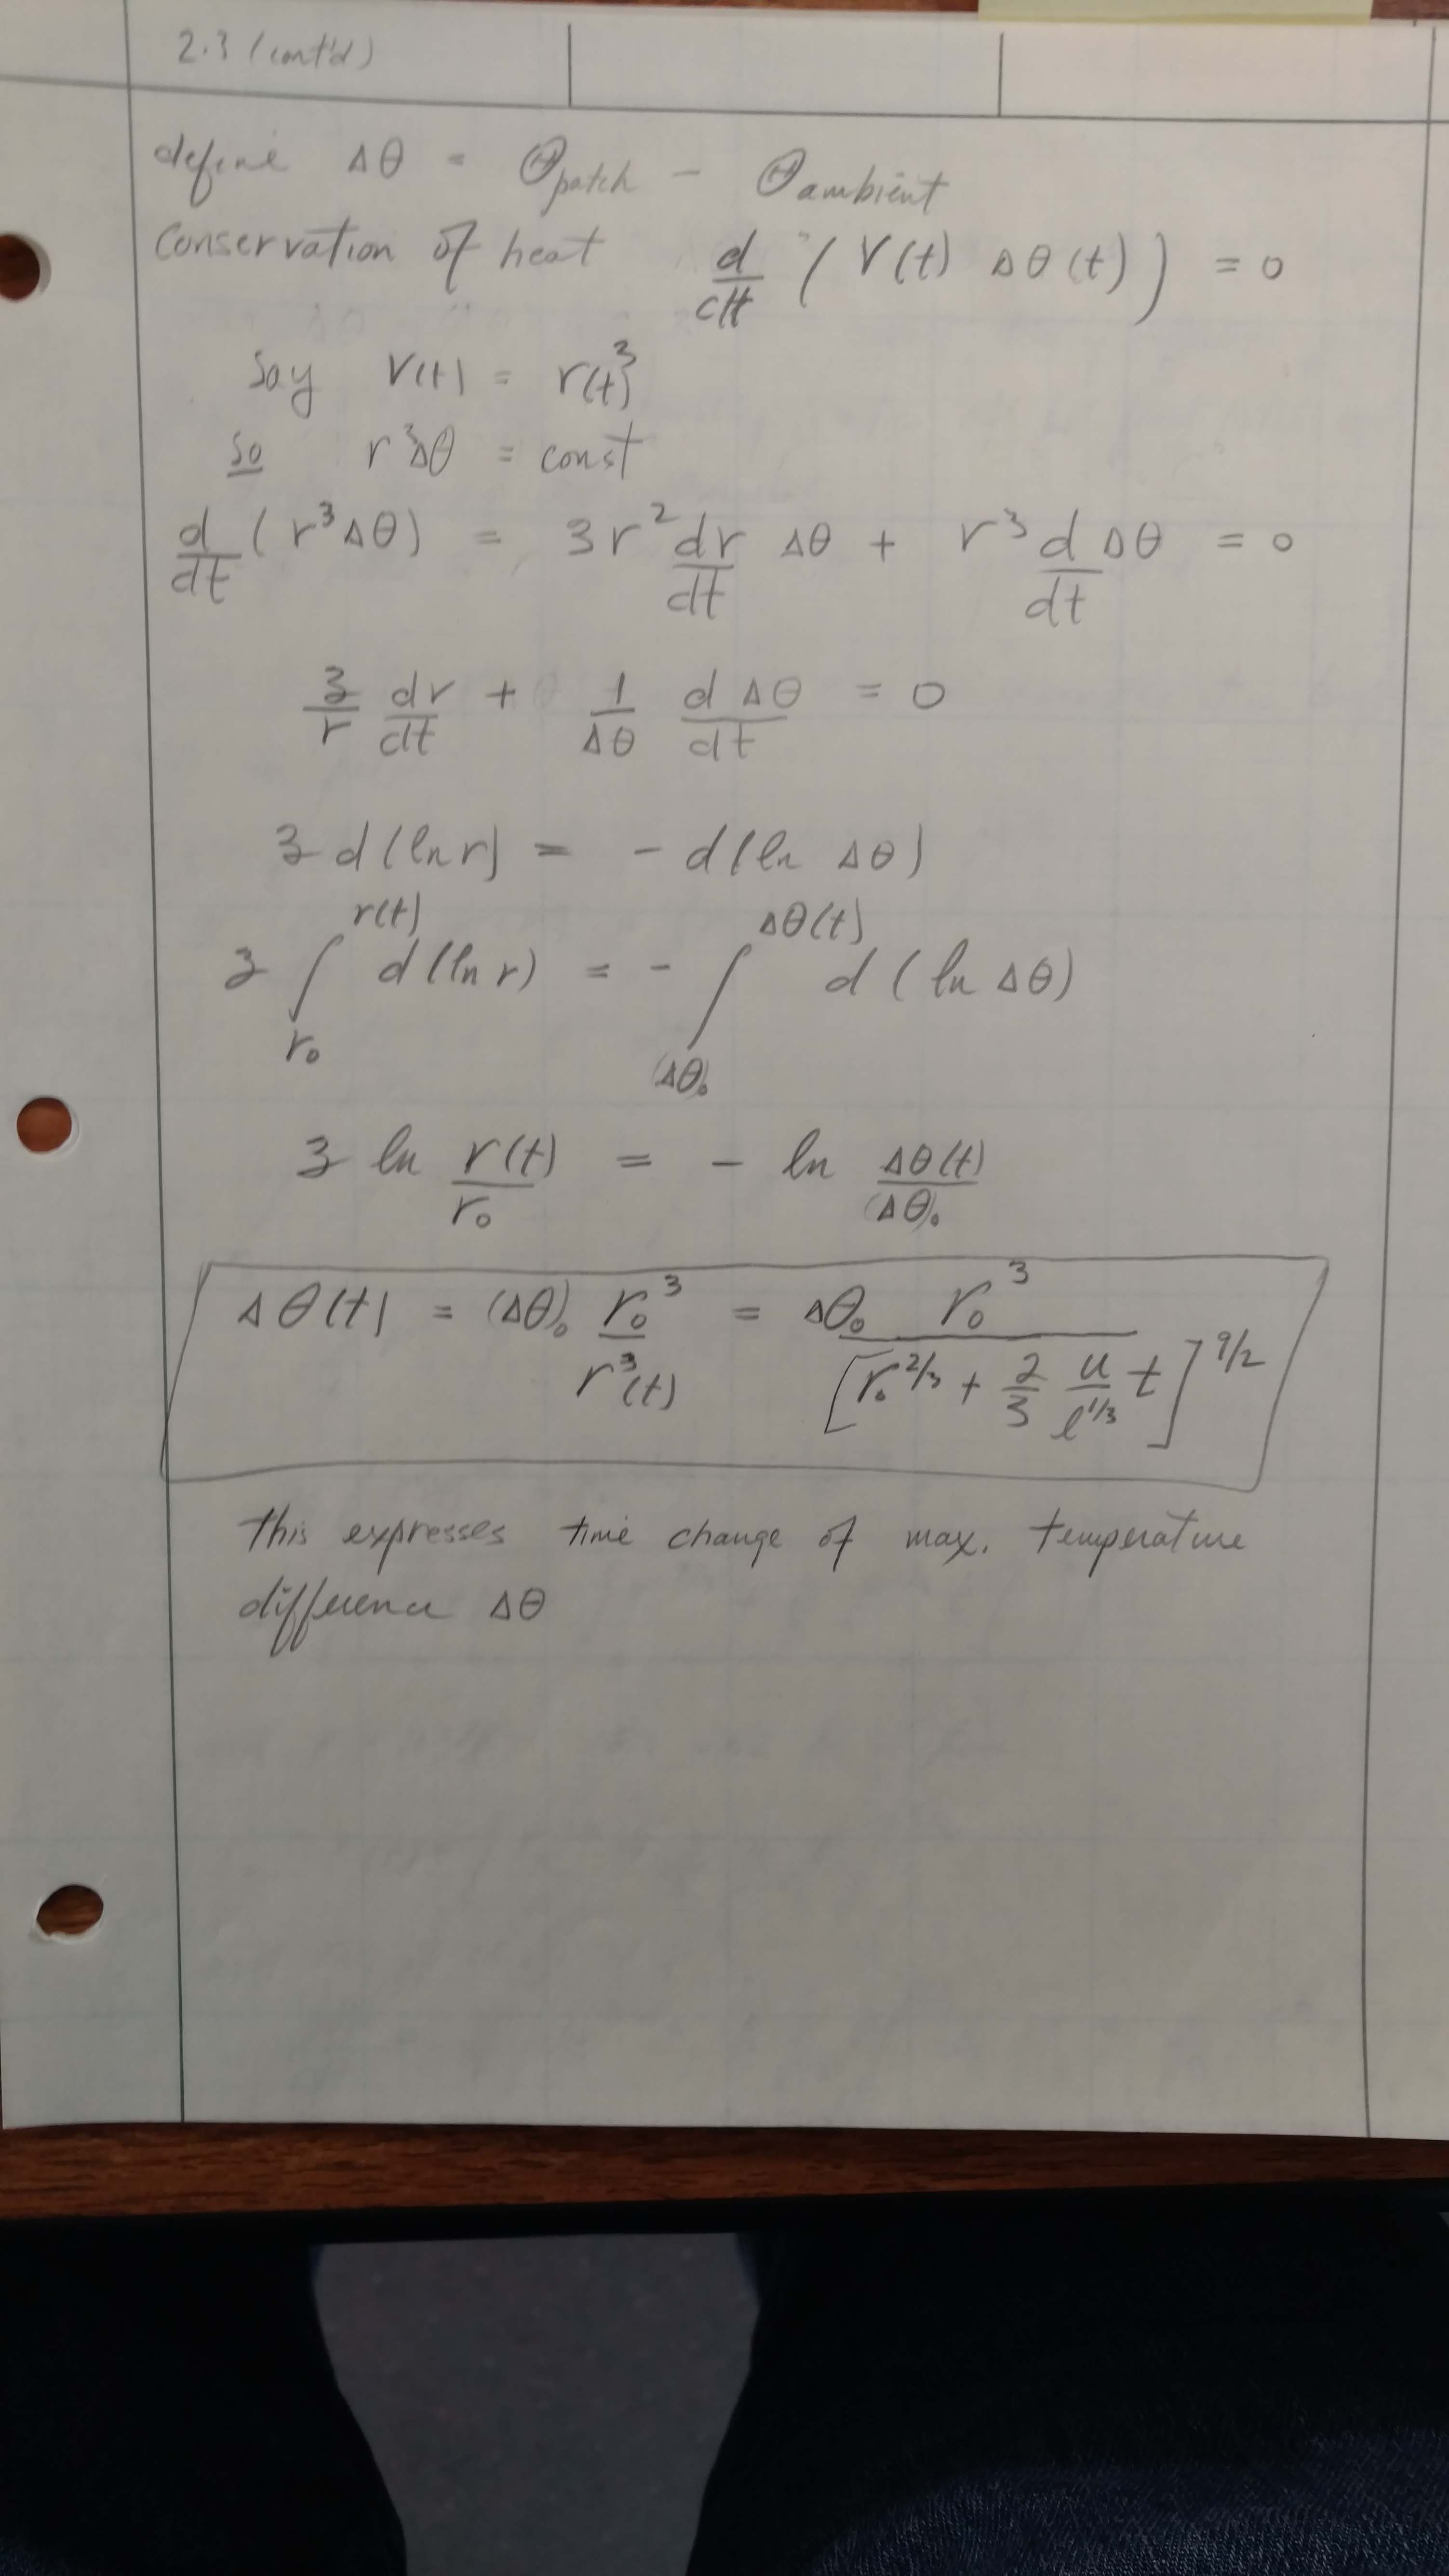 2.3 (cont'd)
define Δθ = Θpatch - Θambient
Conservation of heat d/dt (V(t) Δθ(t)) = 0
Say V(t) = r(t)³
so r³Δθ = const
d/dt (r³Δθ) = 3r² dr/dt Δθ + r³ d/dt Δθ = 0
3/r dr/dt + 1/Δθ dΔθ/dt = 0
3 d(ln r) = - d(ln Δθ)
3 ∫_{r₀}^{r(t)} d(ln r) = - ∫_{(Δθ)₀}^{Δθ(t)} d(ln Δθ)
3 ln r(t)/r₀ = - ln Δθ(t)/(Δθ)₀
Δθ(t) = (Δθ)₀ r₀³/r³(t) = Δθ₀ r₀³/[r₀^{2/3} + 2/3 u/l^{1/3} t]^{9/2}
This expresses time change of max. temperature
difference Δθ